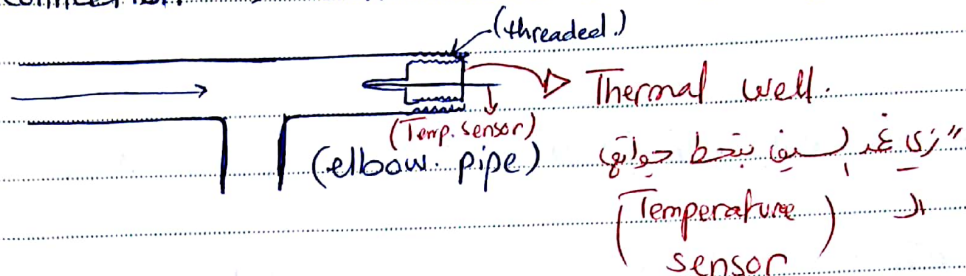 (threaded.)
Thermal well.
(Temp. sensor)
(elbow. pipe)
"زي غمد السيف بتحط جواتها
ال (Temperature
sensor)